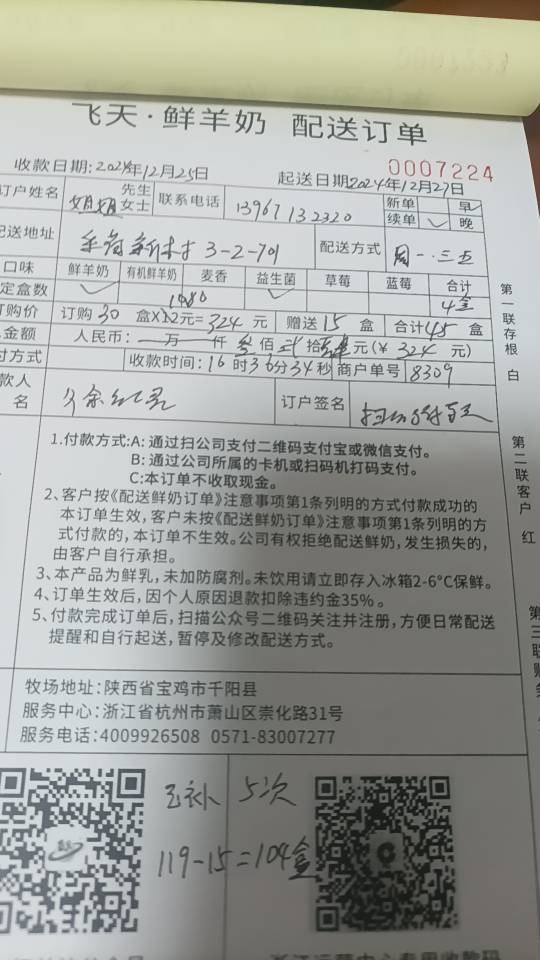 飞天·鲜羊奶 配送订单
收款日期:2024年12月25日 起送日期2024年12月27日 0007224
订户姓名 姐姐 先生 女士 联系电话 13967132320 新单 早
续单 晚
配送地址 3-2-701 配送方式 周一·三五
口味 鲜羊奶 有机鲜羊奶 麦香 益生菌 草莓 蓝莓 合计
定盒数 4盒
订购价 订购30盒X 元=324元 赠送15盒 合计45盒
金额 人民币: 万 仟 叁佰 贰拾 元(¥ 324 元)
付方式 收款时间:16时36分34秒 商户单号 8309
款人名 订户签名
1.付款方式:A:通过扫公司支付二维码支付宝或微信支付。
B:通过公司所属的卡机或扫码机打码支付。
C:本订单不收取现金。
2、客户按《配送鲜奶订单》注意事项第1条列明的方式付款成功的
本订单生效,客户未按《配送鲜奶订单》注意事项第1条列明的方
式付款的,本订单不生效。公司有权拒绝配送鲜奶,发生损失的,
由客户自行承担。
3、本产品为鲜乳,未加防腐剂。未饮用请立即存入冰箱2-6°C保鲜。
4、订单生效后,因个人原因退款扣除违约金35%。
5、付款完成订单后,扫描公众号二维码关注并注册,方便日常配送
提醒和自行起送,暂停及修改配送方式。
牧场地址:陕西省宝鸡市千阳县
服务中心:浙江省杭州市萧山区崇化路31号
服务电话:4009926508 0571-83007277
补 5次
119-15=104盒
第一联存根 白
第二联客户 红
第三联